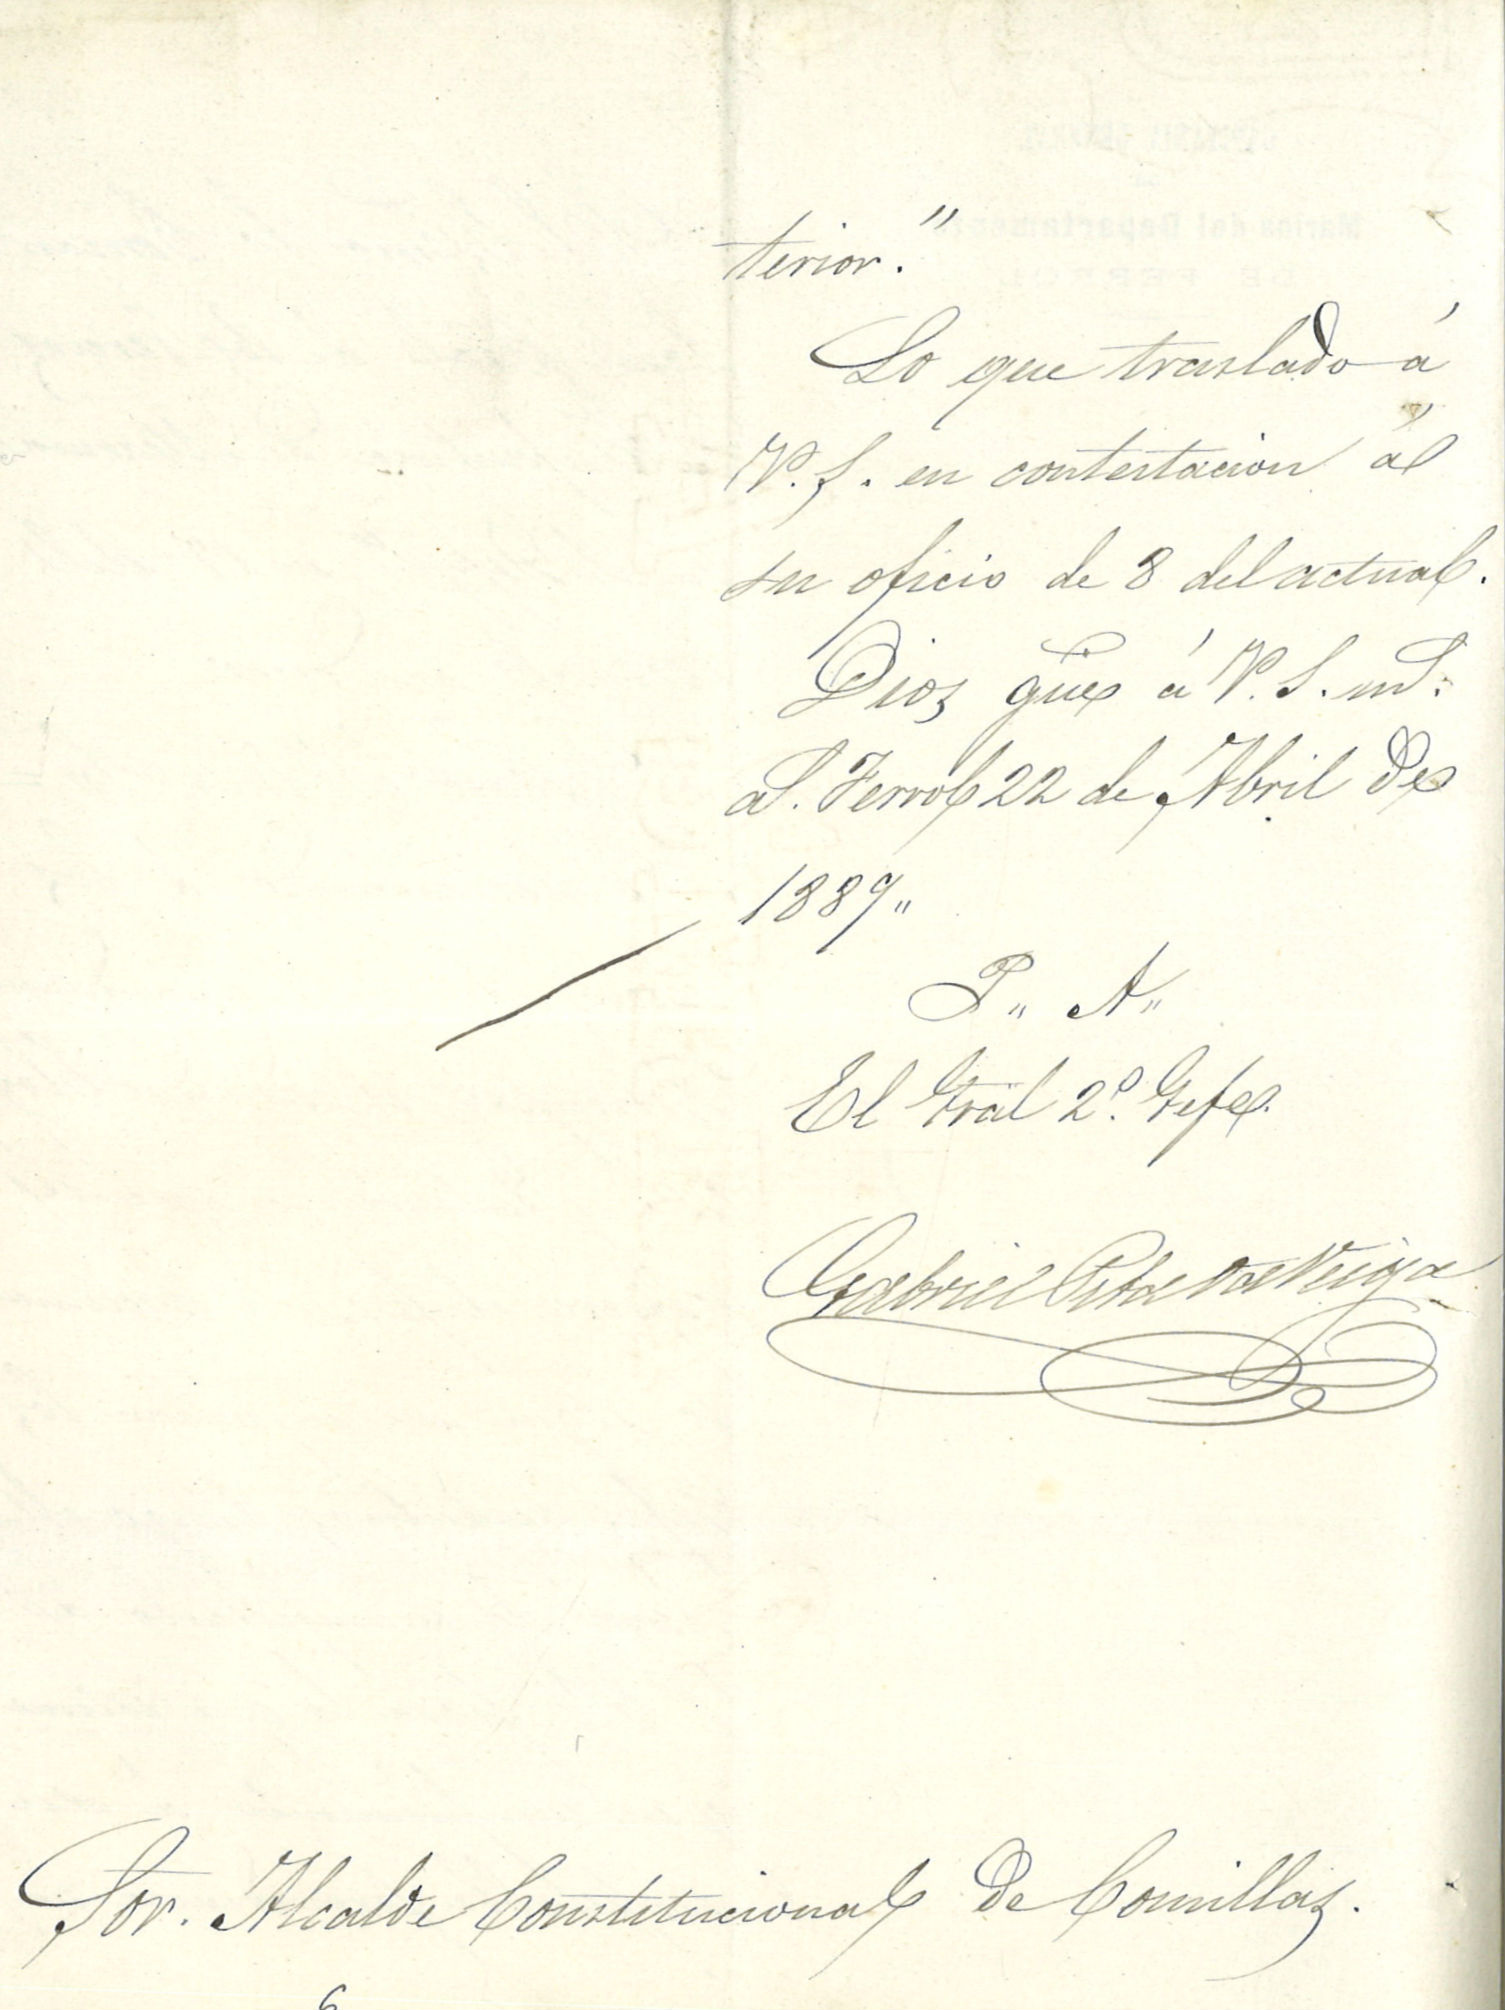 terior."
Lo que traslado á
V. S. en contestacion ál
su oficio de 8 del actual.
Dios güe á V. S. mS.
aS. Ferrol 22 de Abril de
1889"
P" A"
El Gral 2º Gefe.
Gabriel Pita da Veiga
Sor. Alcalde Constitucional de Comillas.